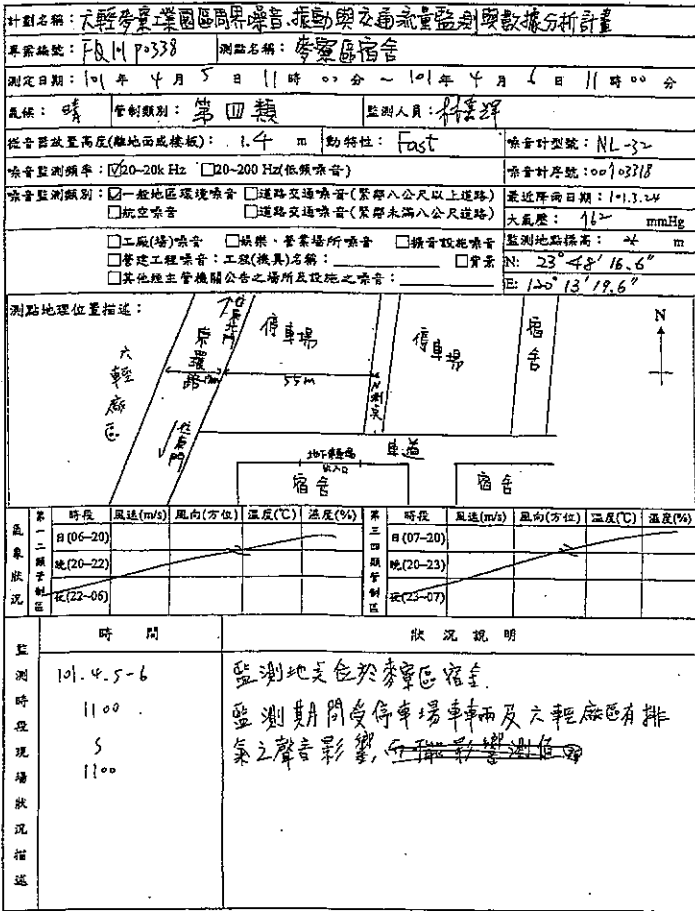 計劃名稱：六輕麥寮工業園區周界噪音、振動與交通流量監測與數據分析計畫
專案編號：FQ101P0338 測點名稱：麥寮區宿舍
測定日期：101 年 4 月 5 日 11 時 00 分 ~ 101 年 4 月 6 日 11 時 00 分
氣候：晴 管制類別：第四類 監測人員：
從音器放置高度(離地面或樓板)：1.4 m 動特性：Fast 噪音計型號：NL-32
噪音監測頻率：☑20~20k Hz □20~200 Hz(低頻噪音) 噪音計序號：00703318
噪音監測類別：☑一般地區環境噪音 □道路交通噪音(緊鄰八公尺以上道路) 最近降雨日期：101.3.24
□航空噪音 □道路交通噪音(緊鄰未滿八公尺道路) 大氣壓：762 mmHg
□工廠(場)噪音 □娛樂、營業場所噪音 □擴音設施噪音 監測地點標高： m
□營建工程噪音：工程(機具)名稱： □背景 N: 23°48'16.6"
□其他經主管機關公告之場所及設施之噪音： E: 120°13'19.6"
測點地理位置描述：
N
往東北門
六輕廠區
東環路
停車場
55m
測點
停車場
宿舍
往東門
車道
地下停車場
出入口
宿舍
宿舍
氣象狀況
第一二類管制區 時段 風速(m/s) 風向(方位) 溫度(℃) 濕度(%)
日(06~20)
晚(20~22)
夜(22~06)
第三四類管制區 時段 風速(m/s) 風向(方位) 溫度(℃) 濕度(%)
日(07~20)
晚(20~23)
夜(23~07)
監測時段現場狀況描述
時 間 狀況說明
101.4.5-6 監測地點位於麥寮區宿舍.
1100 監測期間受停車場車輛及六輕廠區有排
氣之聲音影響,可能影響測值
1100